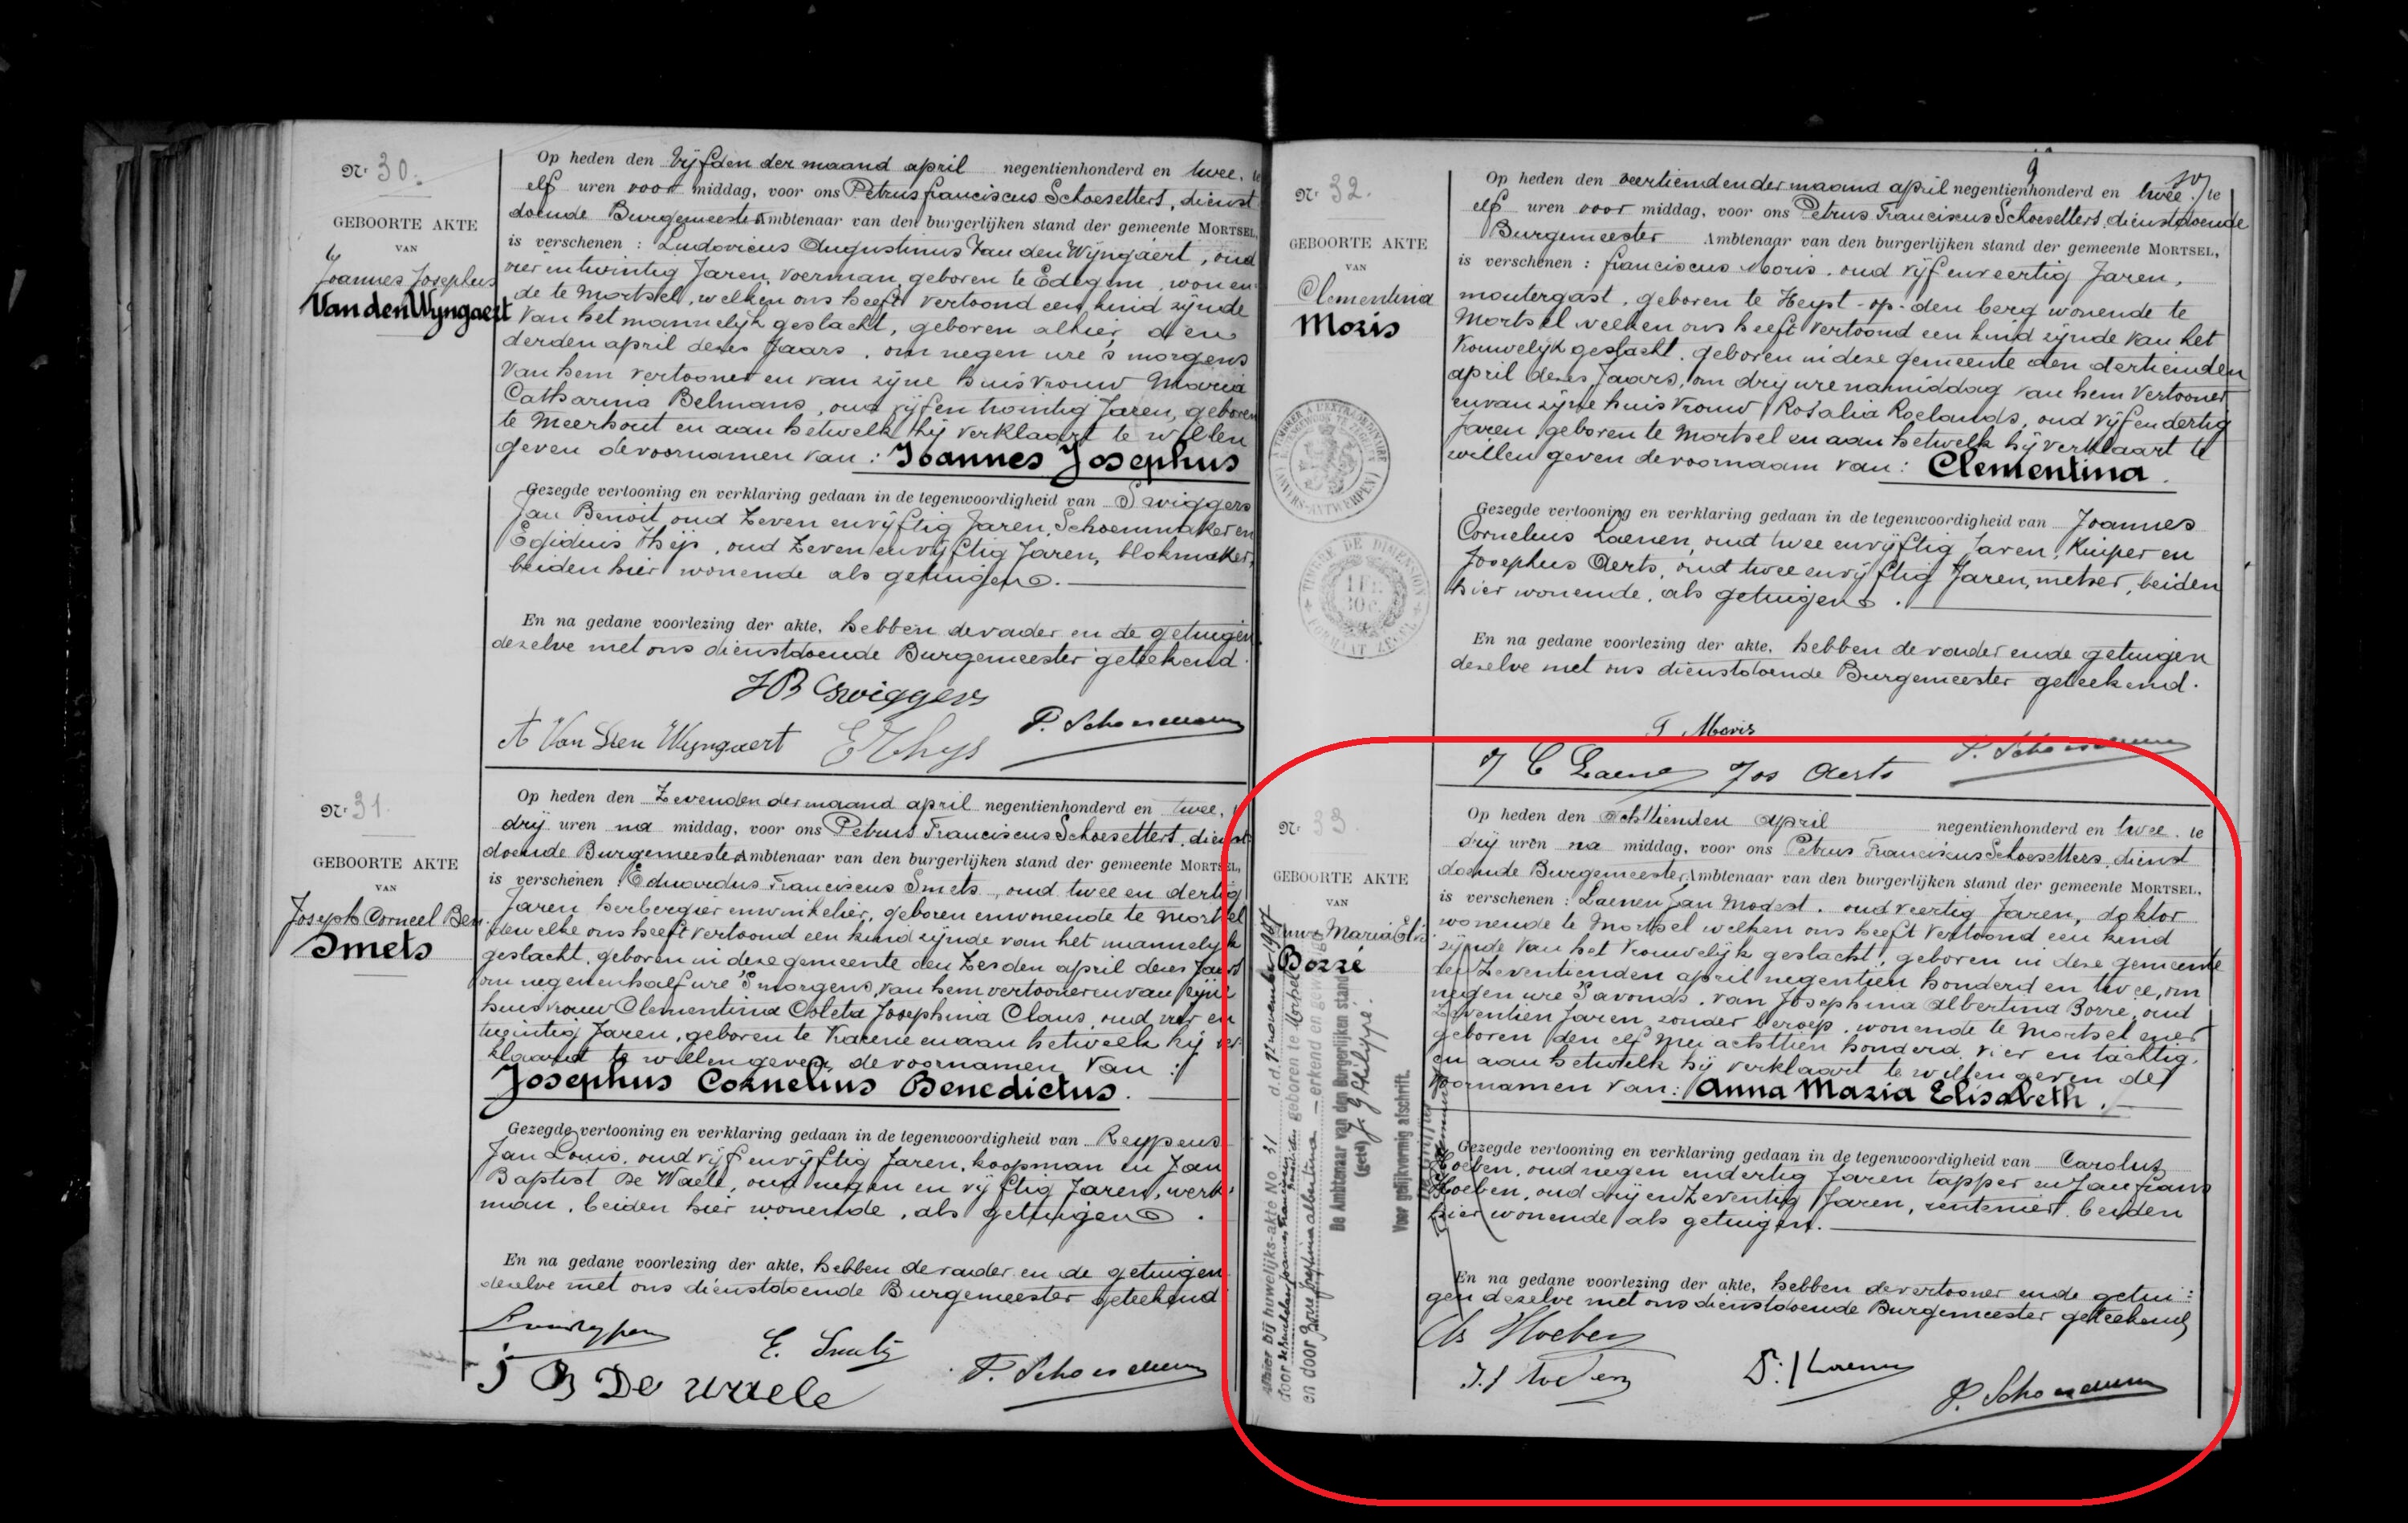 Nr 30.
GEBOORTE AKTE
VAN
Joannes Josephus
Van den Wyngaert
Op heden den Vijfden der maand april negentienhonderd en twee, te
elf uren voor middag, voor ons Petrus franciscus Schoesetters, dienst
doende Burgemeester Ambtenaar van den burgerlijken stand der gemeente MORTSEL,
is verschenen : Ludovicus Augustinus Van den Wyngaert, oud
vier en twintig Jaren, voerman, geboren te Edegem, wonen
de te Mortsel, welken ons heeft vertoond een kind zijnde
van het mannelijk geslacht, geboren alhier, den
derden april dezes Jaars, om negen ure 's morgens
van hem vertooner en van zijne huisvrouw Maria
Catharina Belmans, oud vijf en twintig Jaren, geboren
te Meerhout en aan hetwelk hij verklaart te willen
geven de voornamen van : Joannes Josephus
Gezegde vertooning en verklaring gedaan in de tegenwoordigheid van Swiggers
Jan Benoit, oud Zeven en vijftig Jaren, Schoenmaker en
Egidius Thijs, oud Zeven en vijftig Jaren, blokmaker,
beiden hier wonende als getuigen.
En na gedane voorlezing der akte, hebben de vader en de getuigen
dezelve met ons dienstdoende Burgemeester geteekend.
JB Swiggers
A Van Den Wyngaert E Thys P. Schoesetters
Nr 31.
GEBOORTE AKTE
VAN
Joseph Corneel Ben.
Smets
Op heden den Zevenden der maand april negentienhonderd en twee, te
drij uren na middag, voor ons Petrus Franciscus Schoesetters, dienst
doende Burgemeester Ambtenaar van den burgerlijken stand der gemeente MORTSEL,
is verschenen : Eduardus Franciscus Smets, oud twee en dertig
Jaren herbergier en winkelier, geboren en wonende te Mortsel
denwelke ons heeft vertoond een kind zijnde van het mannelijk
geslacht, geboren in deze gemeente den Zesden april dezes Jaars
om negen en half ure 's morgens, van hem vertooner en van zijne
huisvrouw Clementina Coleta Josephina Claus, oud vier en
twintig Jaren, geboren te en aan hetwelk hij ver
klaard te willen geven de voornamen van :
Josephus Cornelius Benedictus.
Gezegde vertooning en verklaring gedaan in de tegenwoordigheid van Reypens
Jan Louis, oud vijf en vijftig Jaren, koopman en Jan
Baptist De Waele, oud negen en vijftig Jaren, werk
man, beiden hier wonende, als getuigen.
En na gedane voorlezing der akte, hebben de vader en de getuigen
dezelve met ons dienstdoende Burgemeester geteekend
E. Smets
J B De Waele P. Schoesetters
9
Nr 32.
GEBOORTE AKTE
VAN
Clementina
Moris
Op heden den veertienden der maand april negentienhonderd en twee, te
elf uren voor middag, voor ons Petrus Franciscus Schoesetters, dienstdoende
Burgemeester Ambtenaar van den burgerlijken stand der gemeente MORTSEL,
is verschenen : franciscus Moris, oud vijf en veertig Jaren,
moutergast, geboren te Heyst-op-den berg wonende te
Mortsel welken ons heeft vertoond een kind zijnde van het
Vrouwelijk geslacht, geboren in deze gemeente den dertienden
april dezes Jaars, om drij ure namiddag van hem Vertooner
en van zijne huisvrouw Rosalia Roelands, oud vijf en dertig
Jaren, geboren te Mortsel en aan hetwelk hij verklaart te
willen geven de voornaam van : Clementina.
Gezegde vertooning en verklaring gedaan in de tegenwoordigheid van Joannes
Cornelius Laenen, oud twee en vijftig Jaren, Kuiper en
Josephus Aerts, oud twee en vijftig Jaren, metser, beiden
hier wonende, als getuigen.
En na gedane voorlezing der akte, hebben de vader en de getuigen
dezelve met ons dienstdoende Burgemeester geteekend.
F Moris
J C Laenen Jos Aerts P. Schoesetters
TIMBRE DE DIMENSION
FORMAAT ZEGEL
Nr 33.
GEBOORTE AKTE
VAN
Anna Maria Elis.
Borré
Op heden den Achttienden april negentienhonderd en twee, te
drij uren na middag, voor ons Petrus Franciscus Schoesetters, dienst
doende Burgemeester Ambtenaar van den burgerlijken stand der gemeente MORTSEL,
is verschenen : Laenen Jan Modest, oud veertig Jaren, doktor
wonende te Mortsel welken ons heeft vertoond een kind
zijnde van het vrouwelijk geslacht, geboren in deze gemeente
den Zeventienden april negentien honderd en twee, om
negen ure 's avonds, van Josephina Albertina Borré, oud
Zeventien Jaren, zonder beroep, wonende te Mortsel en er
geboren den elf Mei achttien honderd vier en tachtig,
en aan hetwelk hij verklaart te willen geven de
voornamen van : Anna Maria Elisabeth.
Gezegde vertooning en verklaring gedaan in de tegenwoordigheid van Carolus
Hoeben, oud negen en dertig Jaren tapper en Jan frans
Hoeben, oud drij en Zeventig Jaren, rentenier, beiden
hier wonende als getuigen.
En na gedane voorlezing der akte, hebben de vertooner en de getui
gen dezelve met ons dienstdoende Burgemeester geteekend
Ch Hoeben
J. F Hoeben D. J Laenen P. Schoesetters
bij huwelijks-akte No 31 d.d. 9 november 1907
geboren te Mortsel
en door Borré Josephina albertina erkend en gewettigd
De Ambtenaar van den Burgerlijken stand
(get)
Voor gelijkvormig afschrift.